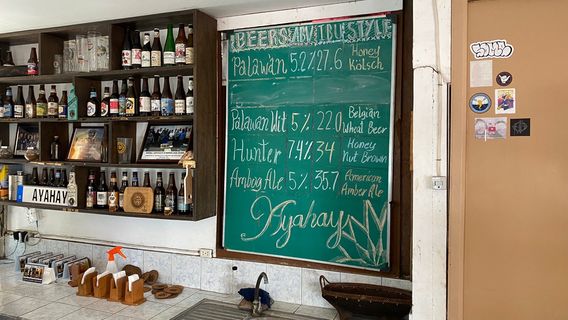 BEERS ABV IBU STYLE
Palawan 5.2% 27.6 Honey Kölsch
Palawan Wit 5% 22.0 Belgian Wheat Beer
Hunter 7.4% 34 Honey Nut Brown
Ambog Ale 5% 35.7 American Amber Ale
Ayahay
AYAHAY